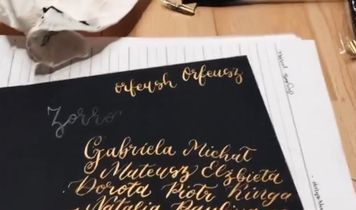 orfeusz Orfeusz
Zorro
Gabriela Michał
Mateusz Elżbieta
Dorota Piotr Kinga
Natalia Paulina